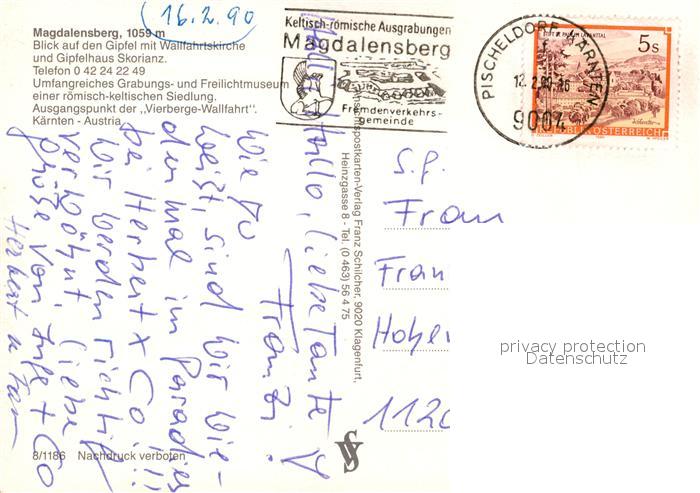 16.2.90
Magdalensberg, 1059 m
Blick auf den Gipfel mit Wallfahrtskirche
und Gipfelhaus Skorianz.
Telefon 0 42 24 22 49
Umfangreiches Grabungs- und Freilichtmuseum
einer römisch-keltischen Siedlung.
Ausgangspunkt der „Vierberge-Wallfahrt".
Kärnten - Austria
Keltisch-römische Ausgrabungen
Magdalensberg
Fremdenverkehrs-
gemeinde
PISCHELDORF, KÄRNTEN
9064
5s
REPUBLIK ÖSTERREICH
Hallo, liebe Tante
Franzi!
Wie Du
weißt, sind wir wie-
der mal im Paradies
bei Herbert & Co!!!!
Wir werden richtig
verwöhnt. Liebe
Grüße von Inge + Co
Herbert u.
Ansichtspostkarten-Verlag Franz Schilcher, 9020 Klagenfurt,
Heinzgasse 8 - Tel. (0 463) 56 4 75
S.g.
Frau
Fran
Hohe
112
privacy protection
Datenschutz
8/1186 Nachdruck verboten